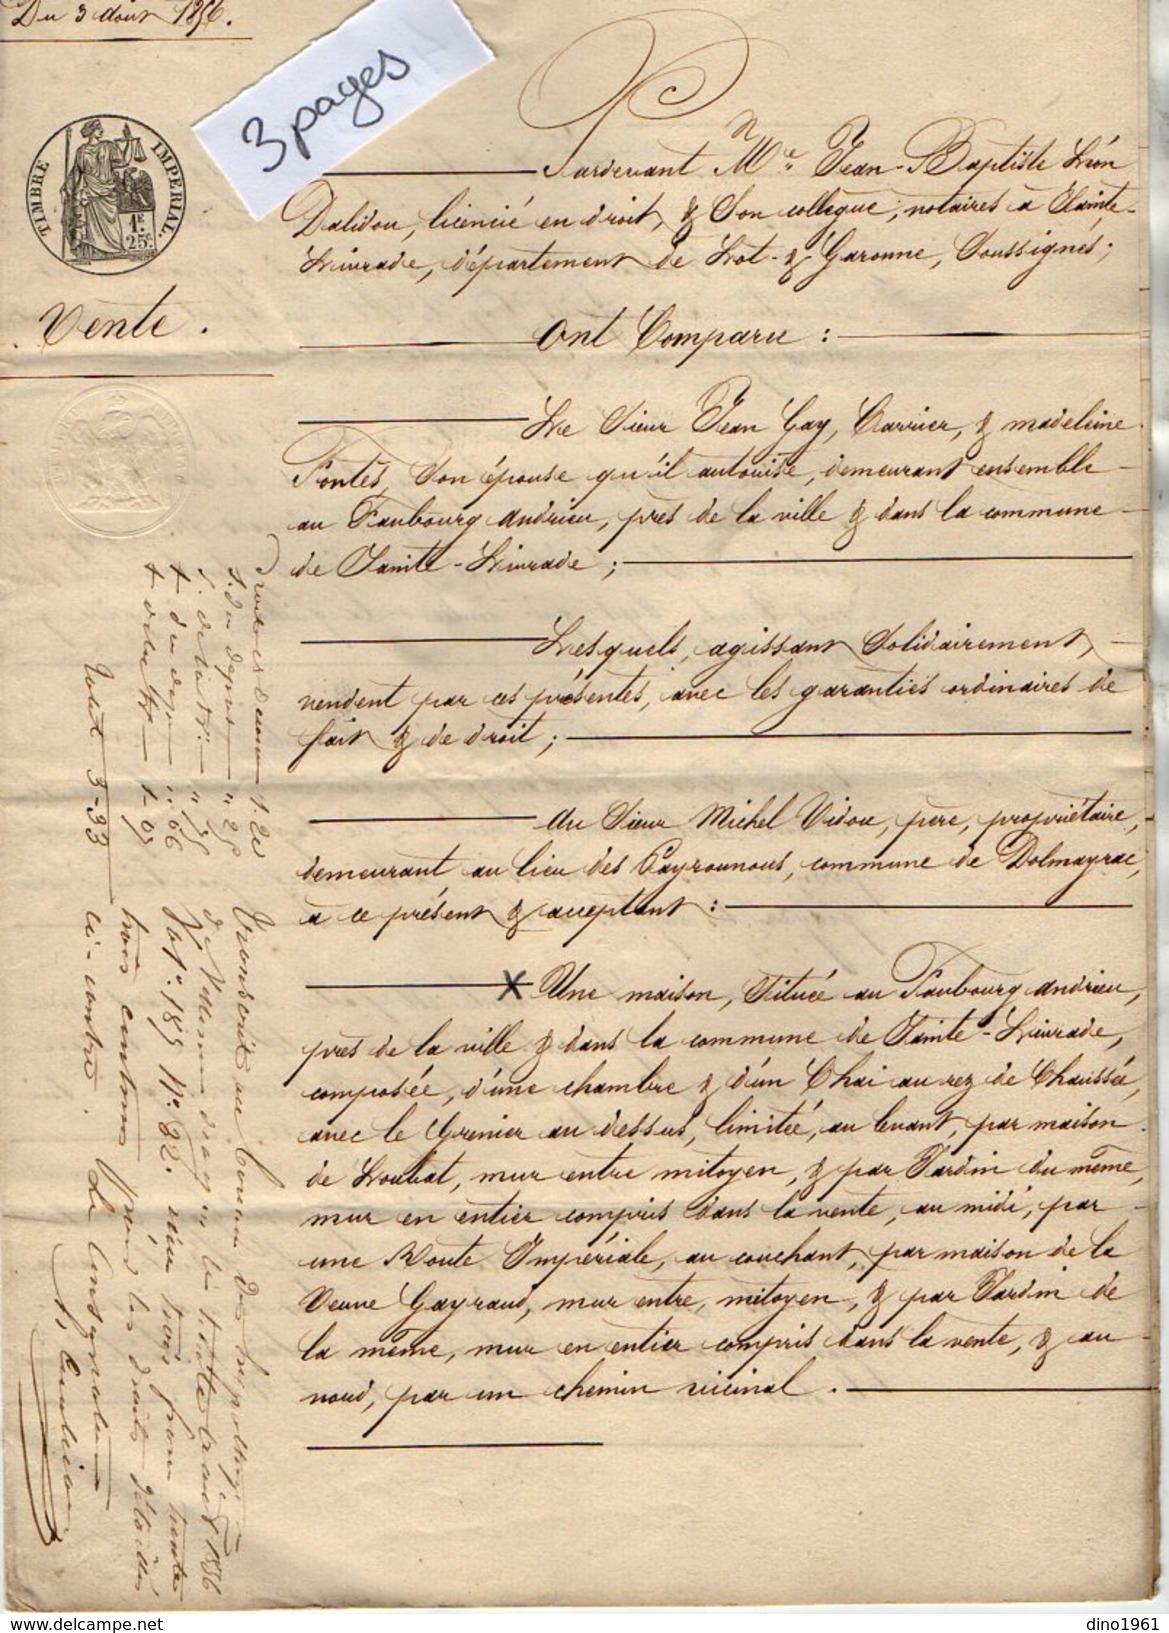 Du 3 août 1856.
3 pages
TIMBRE IMPERIAL.
1F.
25c.
Vente.
Pardevant Me Jean-Baptiste Léon
Dalidou, licencié en droit, & Son collègue, notaires à Sainte-
Livrade, département de Lot-&-Garonne, Soussignés;
Ont Comparu :
Le Sieur Jean Gay, Carrier, & madeleine
Fontès, Son épouse qu'il autorise, demeurant ensemble
au Faubourg andrieu, près de la ville & dans la commune
de Sainte-Livrade;
Lesquels, agissant Solidairement,
vendent par ces présentes, avec les garanties ordinaires de
fait & de droit;
Au Sieur Michel Vidou, père, propriétaire,
demeurant au lieu des Cayrounous, commune de Dolmayrac,
à ce présent & acceptant :
X Une maison, Située au Faubourg andrieu,
près de la ville & dans la commune de Sainte-Livrade,
composée, d'une chambre & d'un Chai au rez de Chaussée,
avec le Grenier au dessus, limitée, au levant, par maison
de Loubat, mur entre mitoyen, & par Jardin du même,
mur en entier compris dans la vente, au midi, par
une Route Impériale, au couchant, par maison de la
Veuve Gayraud, mur entre, mitoyen, & par Jardin de
la même, mur en entier compris dans la vente, & au
nord, par un chemin vicinal.
Transcrit au bureau des hypothèques
de Villeneuve
Vol. 185 No. 82. reçu trois francs trente
trois centimes y compris les droits détaillés
ci-contre. Le Conservateur
Total 3-33
dino1961